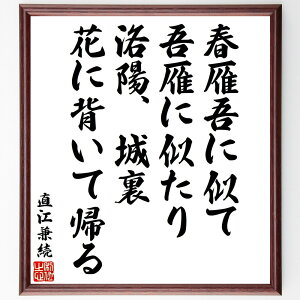 春雁吾に似て
吾雁に似たり
洛陽、城裏
花に背いて帰る
直江兼続